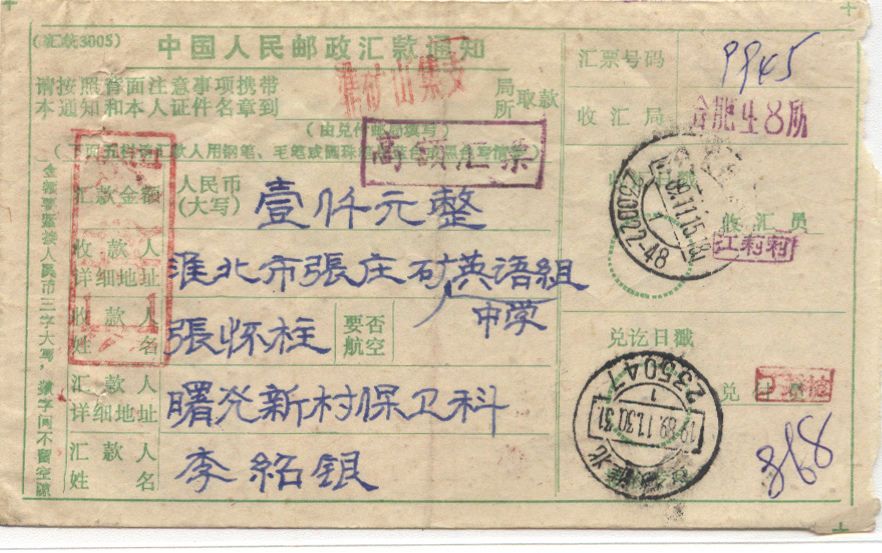 (汇快3005)
中国人民邮政汇款通知
请按照背面注意事项携带
本通知和本人证件名章到
局
所
取款
矿山集支
(由兑付邮局填写)
高额汇票
汇款金额
人民币
(大写)
壹仟元整
收款人
详细地址
淮北市張庄矿英语組
中学
收款人
姓名
張怀柱
要否
航空
汇款人
详细地址
曙光新村保卫科
汇款人
姓名
李紹银
金额要紧接人民币三字大写,数字间不留空隙
汇票号码
9945
收汇局
合肥418所
230022-48
收汇员
江莉莉
兑讫日戳
235047
1
1989.11.30.31
兑付员
868